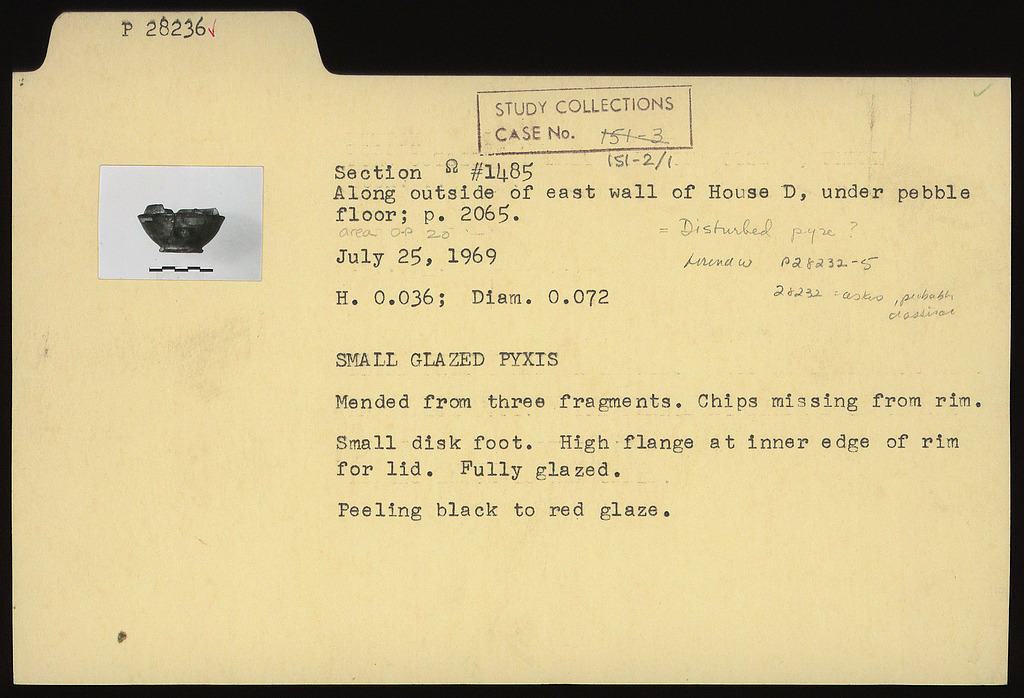 P 28236✓
STUDY COLLECTIONS
CASE No. 151-3
151-2/1
Section Ω #1485
Along outside of east wall of House D, under pebble
floor; p. 2065.
area OP 20
= Disturbed pyre ?
July 25, 1969
P28232-5
H. 0.036; Diam. 0.072
28232 = askos, probably
classical
SMALL GLAZED PYXIS
Mended from three fragments. Chips missing from rim.
Small disk foot. High flange at inner edge of rim
for lid. Fully glazed.
Peeling black to red glaze.